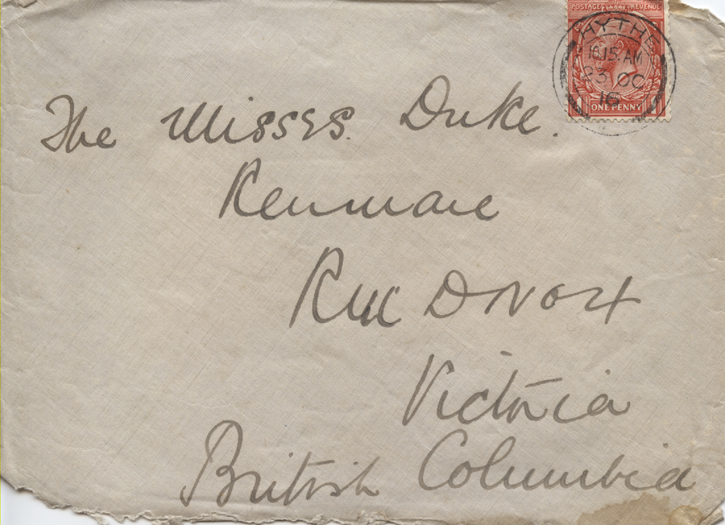 POSTAGE REVENUE
HYTHE
10.15 AM
23 OC
16
ONE PENNY
The Misses. Duke.
Kenmare
Victoria
British Columbia